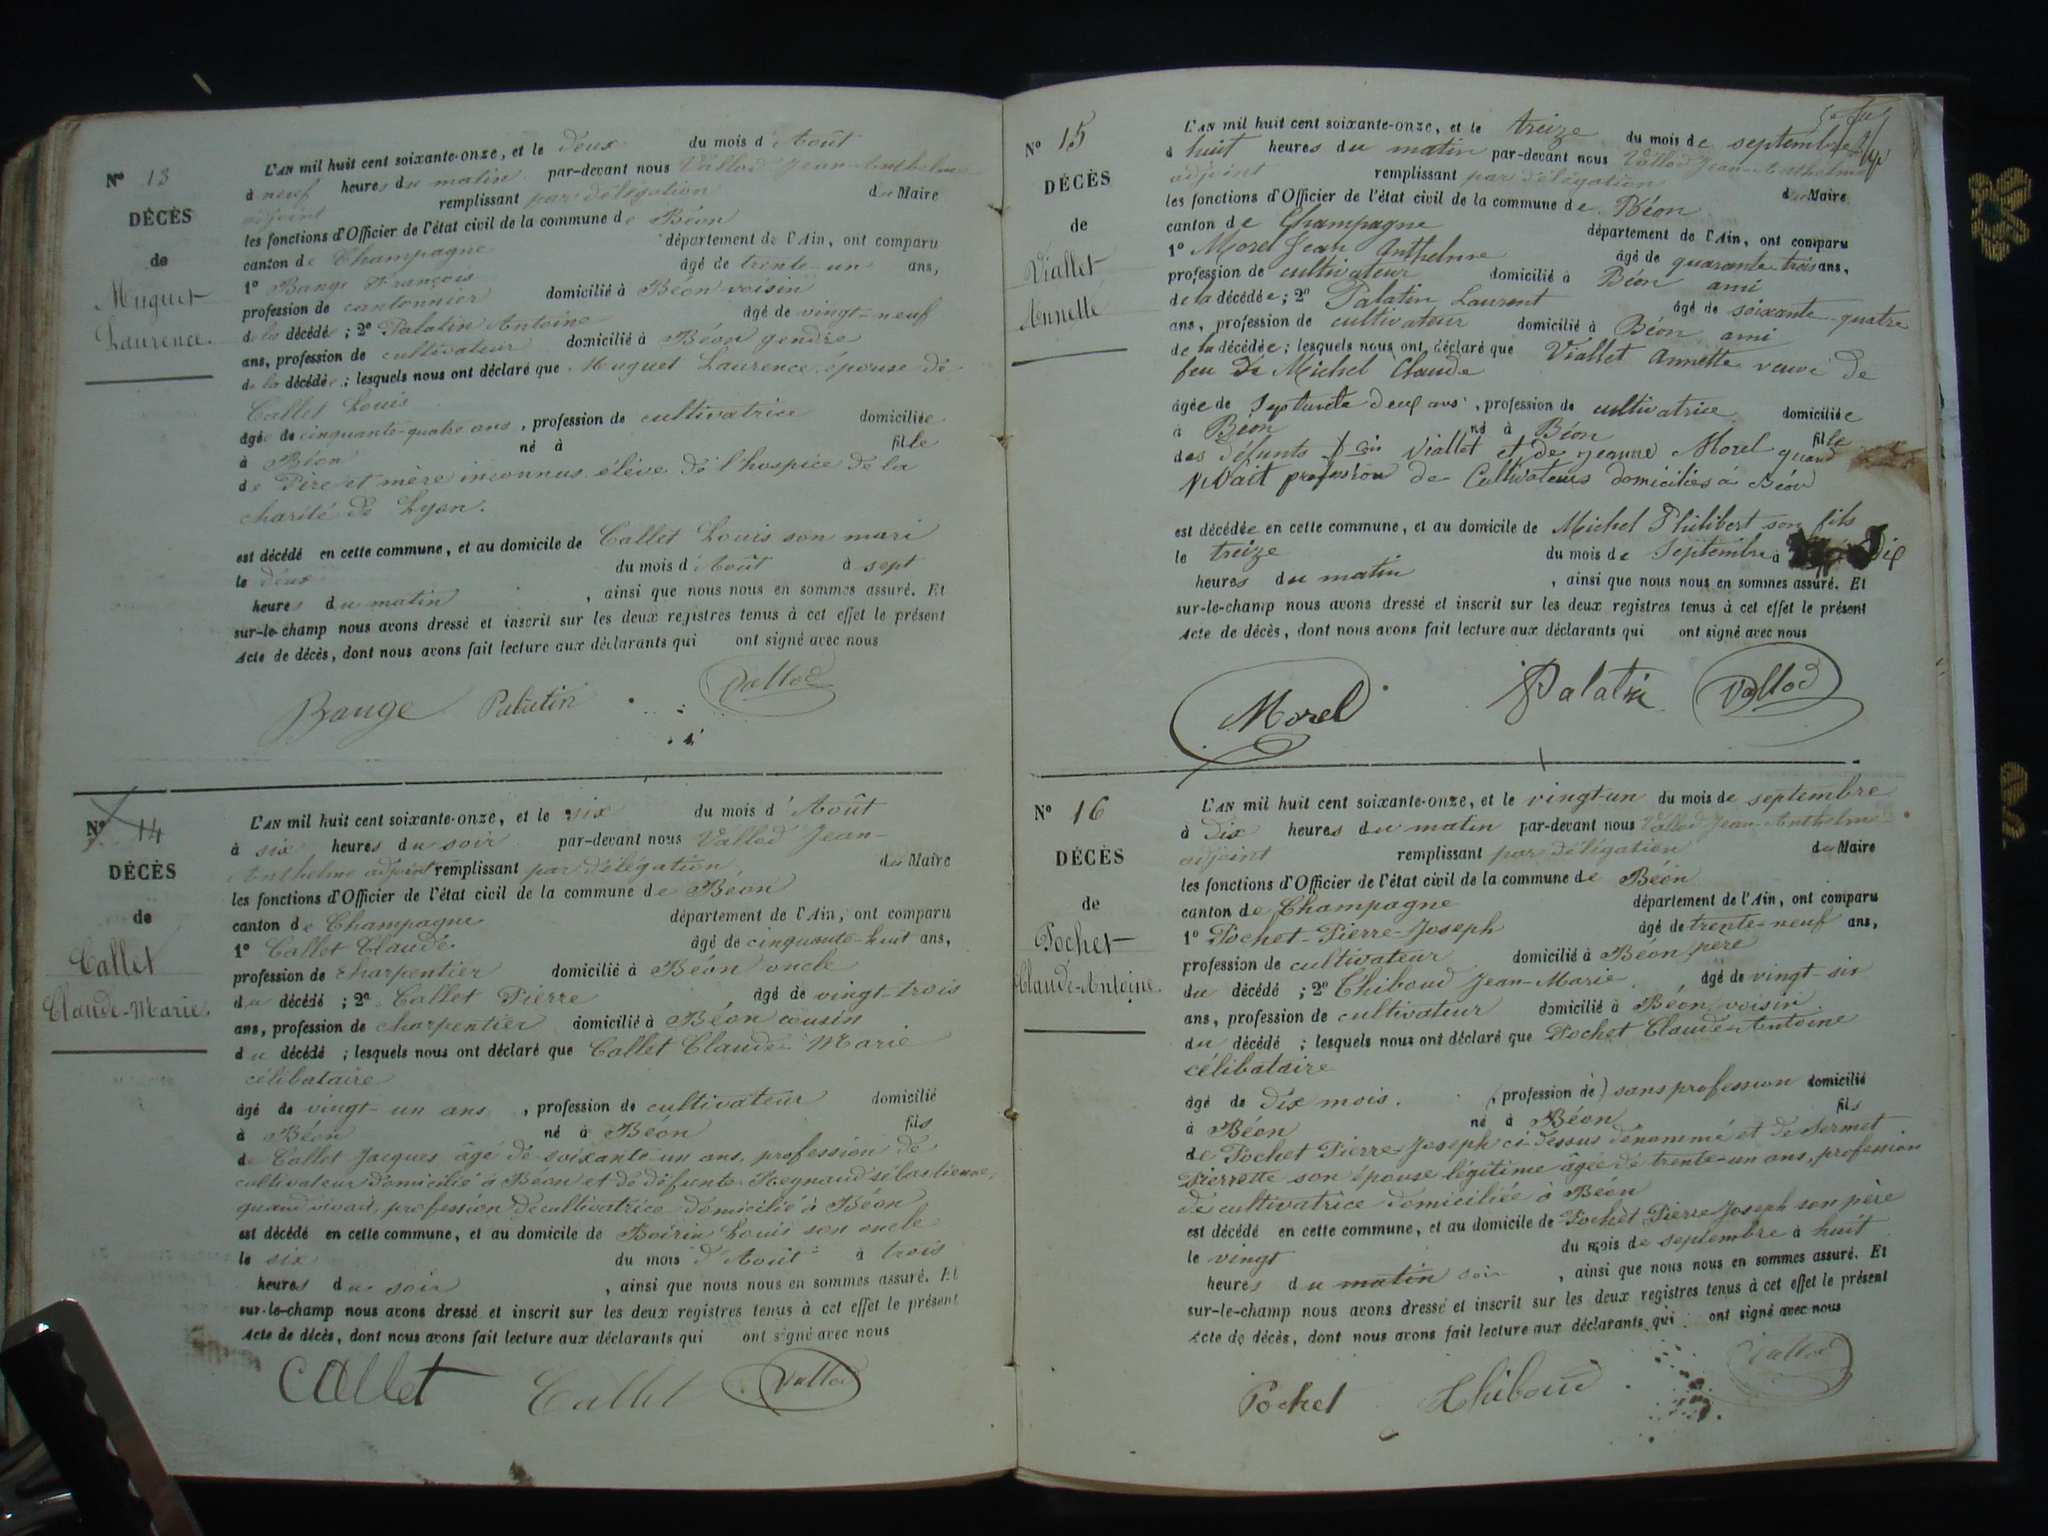 Nº 13
DÉCÈS
de
Muguet
Laurence.
L'AN mil huit cent soixante-onze, et le deux du mois d'Août
à neuf heures du matin par-devant nous Vallod Jean-Anthelme
adjoint remplissant par délégation du Maire
les fonctions d'Officier de l'état civil de la commune de Béon
canton de Champagne département de l'Ain, ont comparu
1º Bange François âgé de trente-un ans,
profession de cantonnier domicilié à Béon voisin
de la décédé ; 2º Palatin Antoine âgé de vingt-neuf
ans, profession de cultivateur domicilié à Béon gendre
de la décédée ; lesquels nous ont déclaré que Muguet Laurence, épouse de
Callet Louis
âgée de cinquante-quatre ans, profession de cultivatrice domiciliée
à Béon né à fille
de Père et mère inconnus élève de l'hospice de la
charité de Lyon.
est décédé en cette commune, et au domicile de Callet Louis son mari
le deux du mois d'Août à sept
heures du matin, ainsi que nous nous en sommes assuré. Et
sur-le-champ nous avons dressé et inscrit sur les deux registres tenus à cet effet le présent
Acte de décès, dont nous avons fait lecture aux déclarants qui ont signé avec nous
Bange Palatin Vallod
Nº 14
DÉCÈS
de
Callet
Claude-Marie.
L'AN mil huit cent soixante-onze, et le six du mois d'Août
à six heures du soir par-devant nous Vallod Jean-
Anthelme adjoint remplissant par délégation du Maire
les fonctions d'Officier de l'état civil de la commune de Béon
canton de Champagne département de l'Ain, ont comparu
1º Callet Claude âgé de cinquante-huit ans,
profession de charpentier domicilié à Béon oncle
du décédé ; 2º Callet Pierre âgé de vingt-trois
ans, profession de charpentier domicilié à Béon cousin
du décédé ; lesquels nous ont déclaré que Callet Claude Marie
célibataire
âgé de vingt-un ans, profession de cultivateur domicilié
à Béon né à Béon fils
de Callet Jacques âgé de soixante-un ans, profession de
cultivateur domicilié à Béon et de défunte Regnaud sébastienne,
quand vivait, profession de cultivatrice domicilié à Béon
est décédé en cette commune, et au domicile de Boirin Louis son oncle
le six du mois d'Août à trois
heures du soir, ainsi que nous nous en sommes assuré. Et
sur-le-champ nous avons dressé et inscrit sur les deux registres tenus à cet effet le présent
Acte de décès, dont nous avons fait lecture aux déclarants qui ont signé avec nous
Callet Callet Vallod
Nº 15
DÉCÈS
de
Viallet
Annette
L'AN mil huit cent soixante-onze, et le treize du mois de septembre
à huit heures du matin par-devant nous Vallod Jean-Anthelme
adjoint remplissant par délégation du Maire
les fonctions d'Officier de l'état civil de la commune de Béon
canton de Champagne département de l'Ain, ont comparu
1º Morel Jean Anthelme âgé de quarante-trois ans,
profession de cultivateur domicilié à Béon ami
de la décédée ; 2º Palatin Laurent âgé de soixante-quatre
ans, profession de cultivateur domicilié à Béon ami
de la décédée ; lesquels nous ont déclaré que Viallet Annette veuve de
feu de Michel Claude
âgée de septante deux ans, profession de cultivatrice domiciliée
à Béon né à Béon fille
des défunts Viallet et de jeanne Morel quand
vivait profession de Cultivateurs domiciliés à Béon
est décédée en cette commune, et au domicile de Michel Philibert son fils
le treize du mois de septembre à Dix
heures du matin, ainsi que nous nous en sommes assuré. Et
sur-le-champ nous avons dressé et inscrit sur les deux registres tenus à cet effet le présent
Acte de décès, dont nous avons fait lecture aux déclarants qui ont signé avec nous
Morel Palatin Vallod
Nº 16
DÉCÈS
de
Pochet
Claude-Antoine.
L'AN mil huit cent soixante-onze, et le vingt-un du mois de septembre
à dix heures du matin par-devant nous Vallod Jean-Anthelme
adjoint remplissant par délégation du Maire
les fonctions d'Officier de l'état civil de la commune de Béon
canton de Champagne département de l'Ain, ont comparu
1º Pochet-Pierre-Joseph âgé de trente-neuf ans,
profession de cultivateur domicilié à Béon père
du décédé ; 2º Thiboud Jean-Marie âgé de vingt-six
ans, profession de cultivateur domicilié à Béon, voisin
du décédé ; lesquels nous ont déclaré que Pochet Claude-Antoine
célibataire
âgé de dix mois. (profession de) sans profession domicilié
à Béon né à Béon fils
de Pochet Pierre-Joseph ci-dessus dénommé et de Sermet
Pierrette son épouse légitime âgée de trente-un ans, profession
de cultivatrice domiciliée à Béon
est décédé en cette commune, et au domicile de Pochet Pierre Joseph son père
le vingt du mois de septembre à huit
heures du matin soir, ainsi que nous nous en sommes assuré. Et
sur-le-champ nous avons dressé et inscrit sur les deux registres tenus à cet effet le présent
Acte de décès, dont nous avons fait lecture aux déclarants qui ont signé avec nous
Pochet Thiboud Vallod